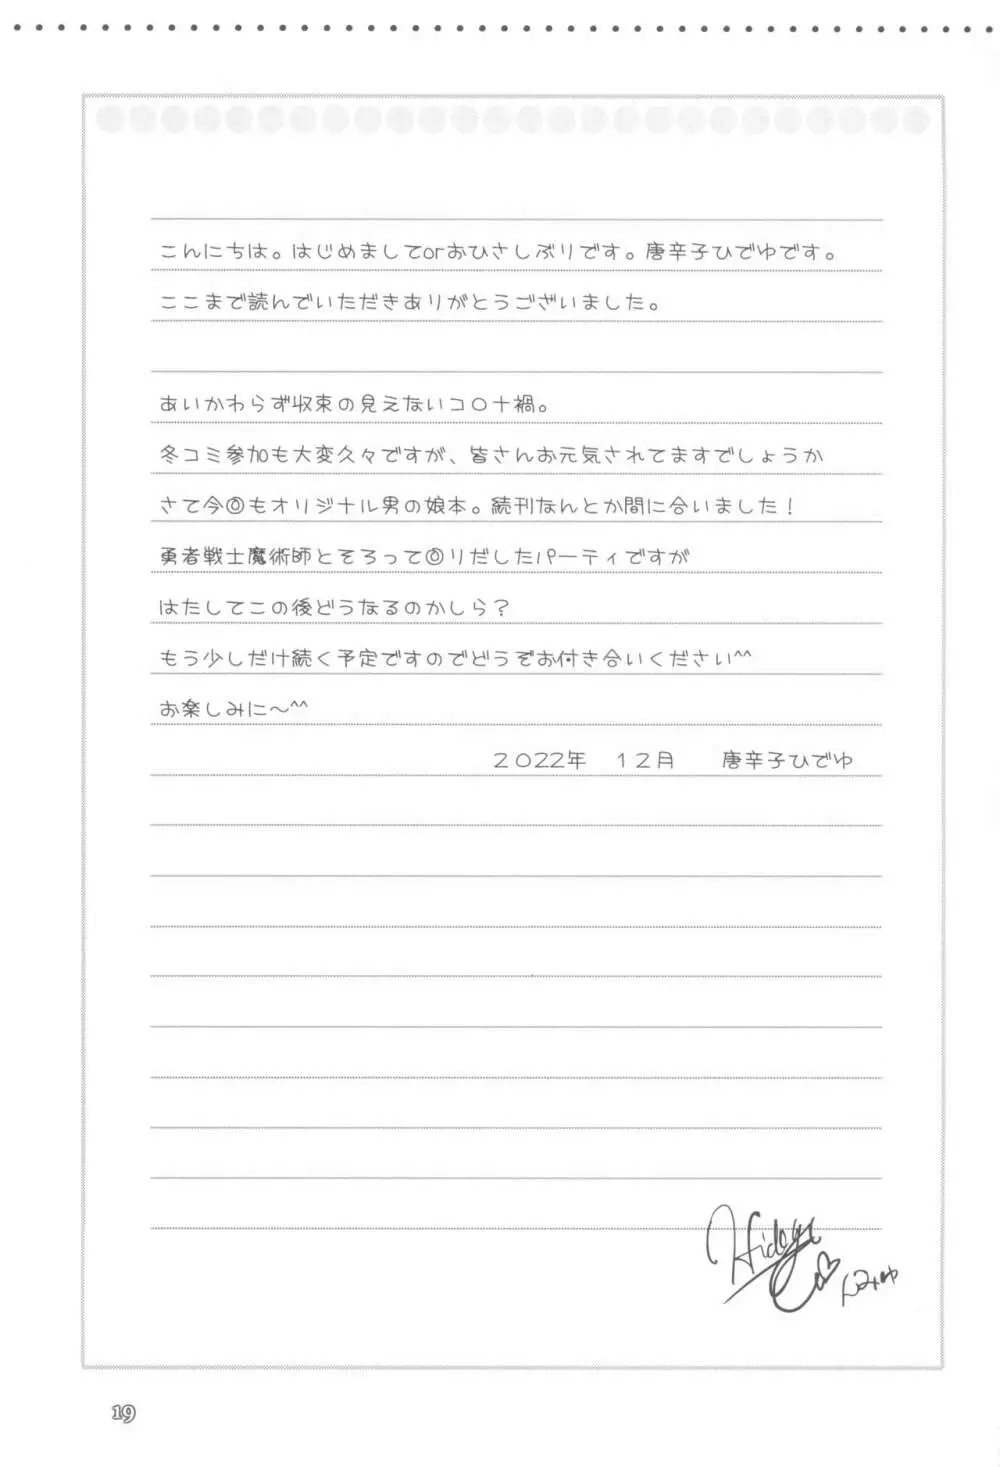 こんにちは。はじめましてorおひさしぶりです。唐辛子ひでゆです。
ここまで読んでいただきありがとうございました。
あいかわらず収束の見えないコロナ禍。
冬コミ参加も大変久々ですが、皆さんお元気されてますでしょうか
さて今回もオリジナル男の娘本。続刊なんとか間に合いました！
勇者戦士魔術師とそろって回りだしたパーティですが
はたしてこの後どうなるのかしら？
もう少しだけ続く予定ですのでどうぞお付き合いください^^
お楽しみに～^^
２０２２年　１２月　　唐辛子ひでゆ
Hideyu
19